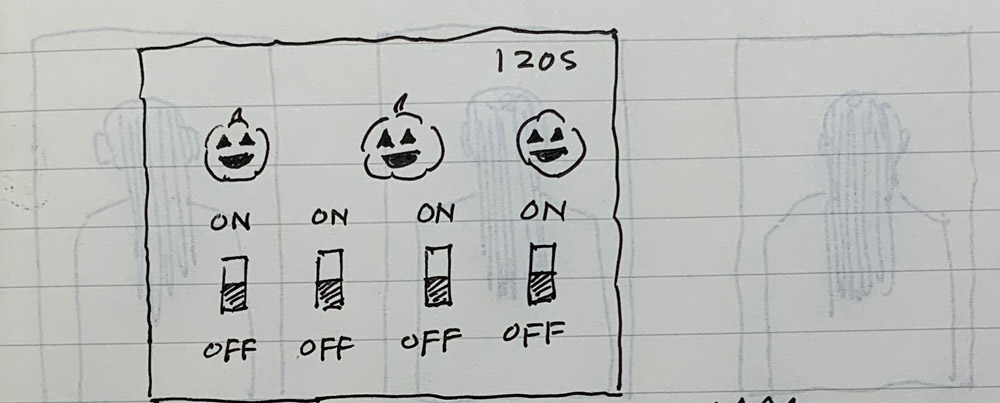 120S
ON ON ON ON
OFF OFF OFF OFF